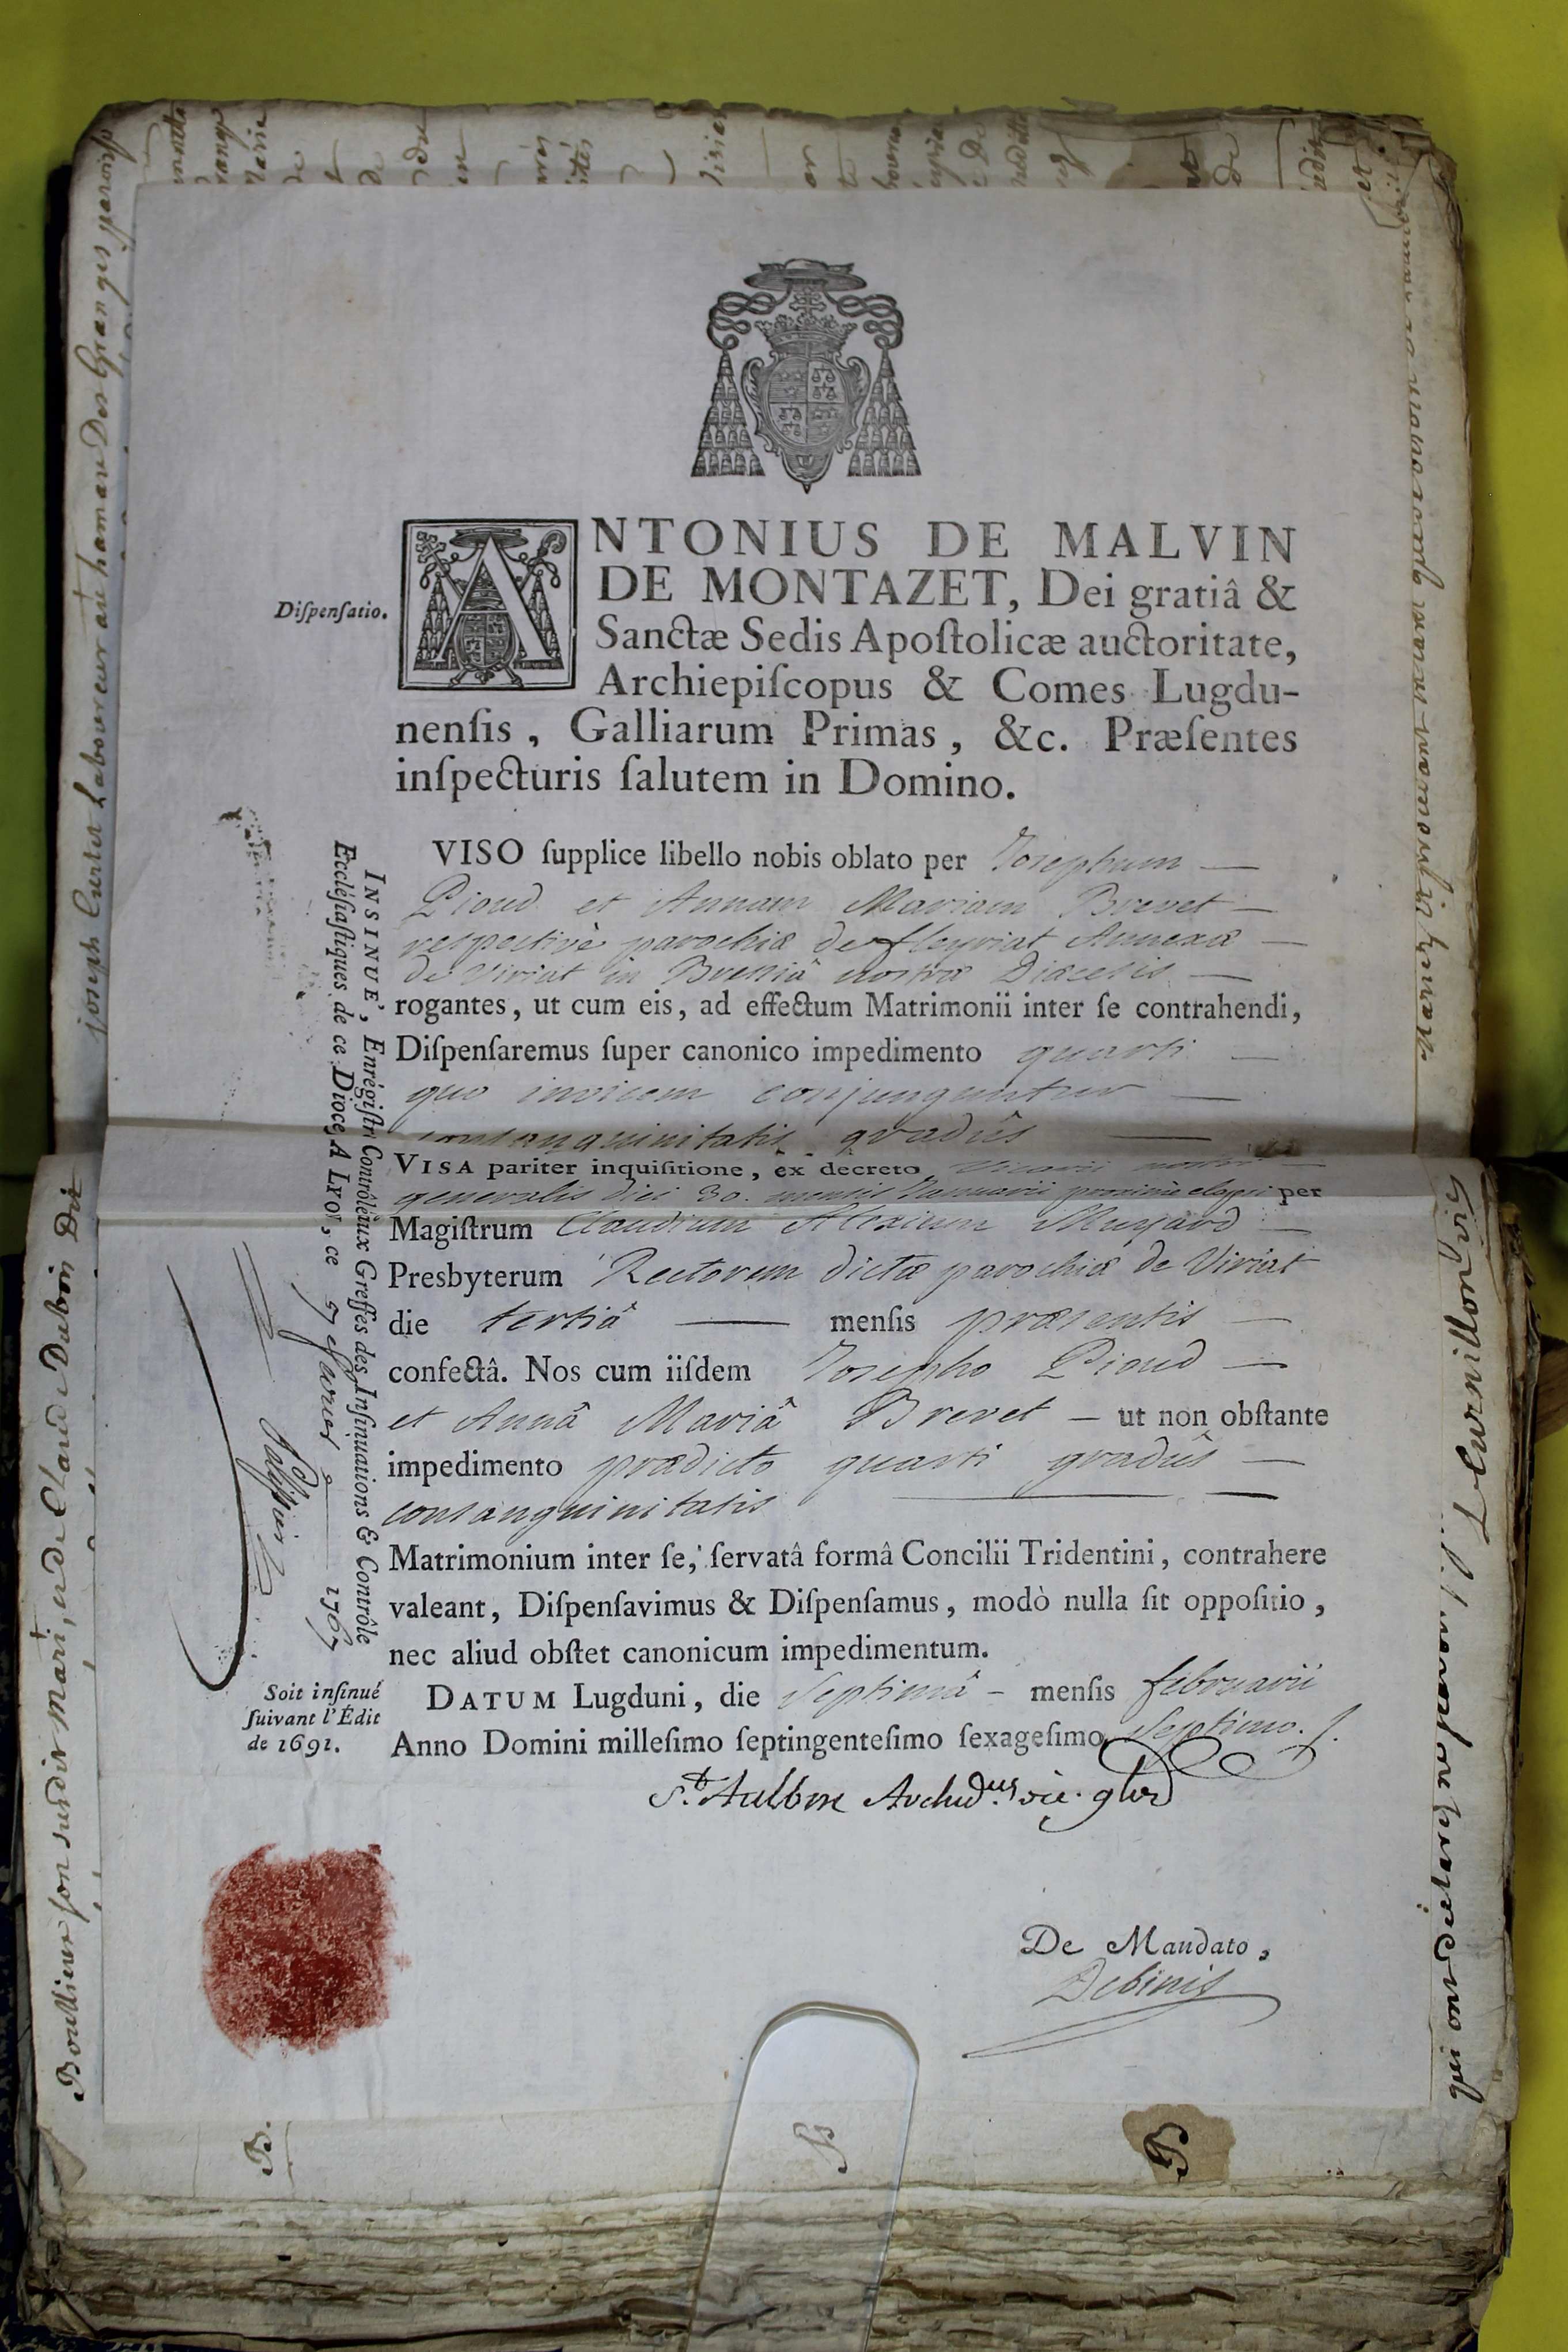 Diſpenſatio.
ANTONIUS DE MALVIN
DE MONTAZET, Dei gratiâ &
Sanctæ Sedis Apoſtolicæ auctoritate,
Archiepiſcopus & Comes Lugdu-
nenſis, Galliarum Primas, &c. Præſentes
inſpecturis ſalutem in Domino.
VISO ſupplice libello nobis oblato per Josephum
Pioud et Annam Mariam Brevet
respectivè parochiæ de fleyriat Annexæ
de Viriat in Bressiâ nostræ Diœcesis
rogantes, ut cum eis, ad effectum Matrimonii inter ſe contrahendi,
Diſpenſaremus ſuper canonico impedimento quarti
quo invicem conjunguntur
consanguinitatis gradûs
VISA pariter inquiſitione, ex decreto Vicarii nostri
generalis diei 30. mensis Januarii proximè elapsi per
Magiſtrum Claudium Alexium
Presbyterum Rectorem dictæ parochiæ de Viriat
die tertiâ menſis præsentis
confectâ. Nos cum iiſdem Josepho Pioud
et Annâ Mariâ Brevet – ut non obſtante
impedimento prædicto quarti gradûs
consanguinitatis
Matrimonium inter ſe, ſervatâ formâ Concilii Tridentini, contrahere
valeant, Diſpenſavimus & Diſpenſamus, modò nulla ſit oppoſitio,
nec aliud obſtet canonicum impedimentum.
DATUM Lugduni, die Septimâ – menſis februarii
Anno Domini milleſimo ſeptingenteſimo ſexageſimo Septimo.
St. Aulbin vic. g
De Mandato,
Debinis
INSINUÉ, Enrégiſtr Contrôlé aux Greffes des Inſinuations & Contrôle
Eccléſiaſtiques de ce Dioce A Lyo, ce 7 1767
Soit inſinué
ſuivant l'Édit
de 1691.
joseph Curtet Laboureur au hameau Des Granges paroisse
Bouillieux son susdit Mari, et de Claude Dubois Du
B.
B
B
qui ont declaré ne scavoir
Curnillon vic